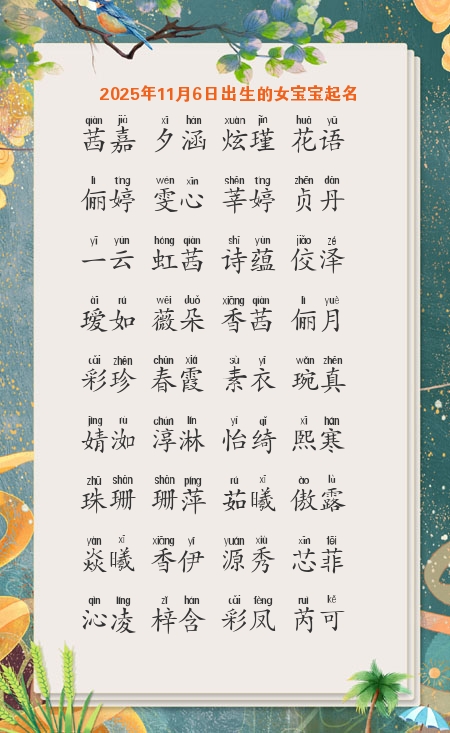 2025年11月6日出生的女宝宝起名
qiàn jiā xī hán xuàn jǐn huā yǔ
茜嘉 夕涵 炫瑾 花语
lì tíng wén xīn shēn tíng zhēn dān
俪婷 雯心 莘婷 贞丹
yī yún hóng qiàn shī yùn jiǎo zé
一云 虹茜 诗蕴 佼泽
ài rú wēi duǒ xiāng qiàn lì yuè
瑷如 薇朵 香茜 俪月
cǎi zhēn chūn xiá sù yī wǎn zhēn
彩珍 春霞 素衣 琬真
jìng rù chún lín yí qǐ xī hán
婧洳 淳淋 怡绮 熙寒
zhū shān shān píng rú xī ào lù
珠珊 珊萍 茹曦 傲露
yàn xī xiāng yī yuán xiù xīn fēi
焱曦 香伊 源秀 芯菲
qìn líng zǐ hán cǎi fèng ruì kě
沁凌 梓含 彩凤 芮可